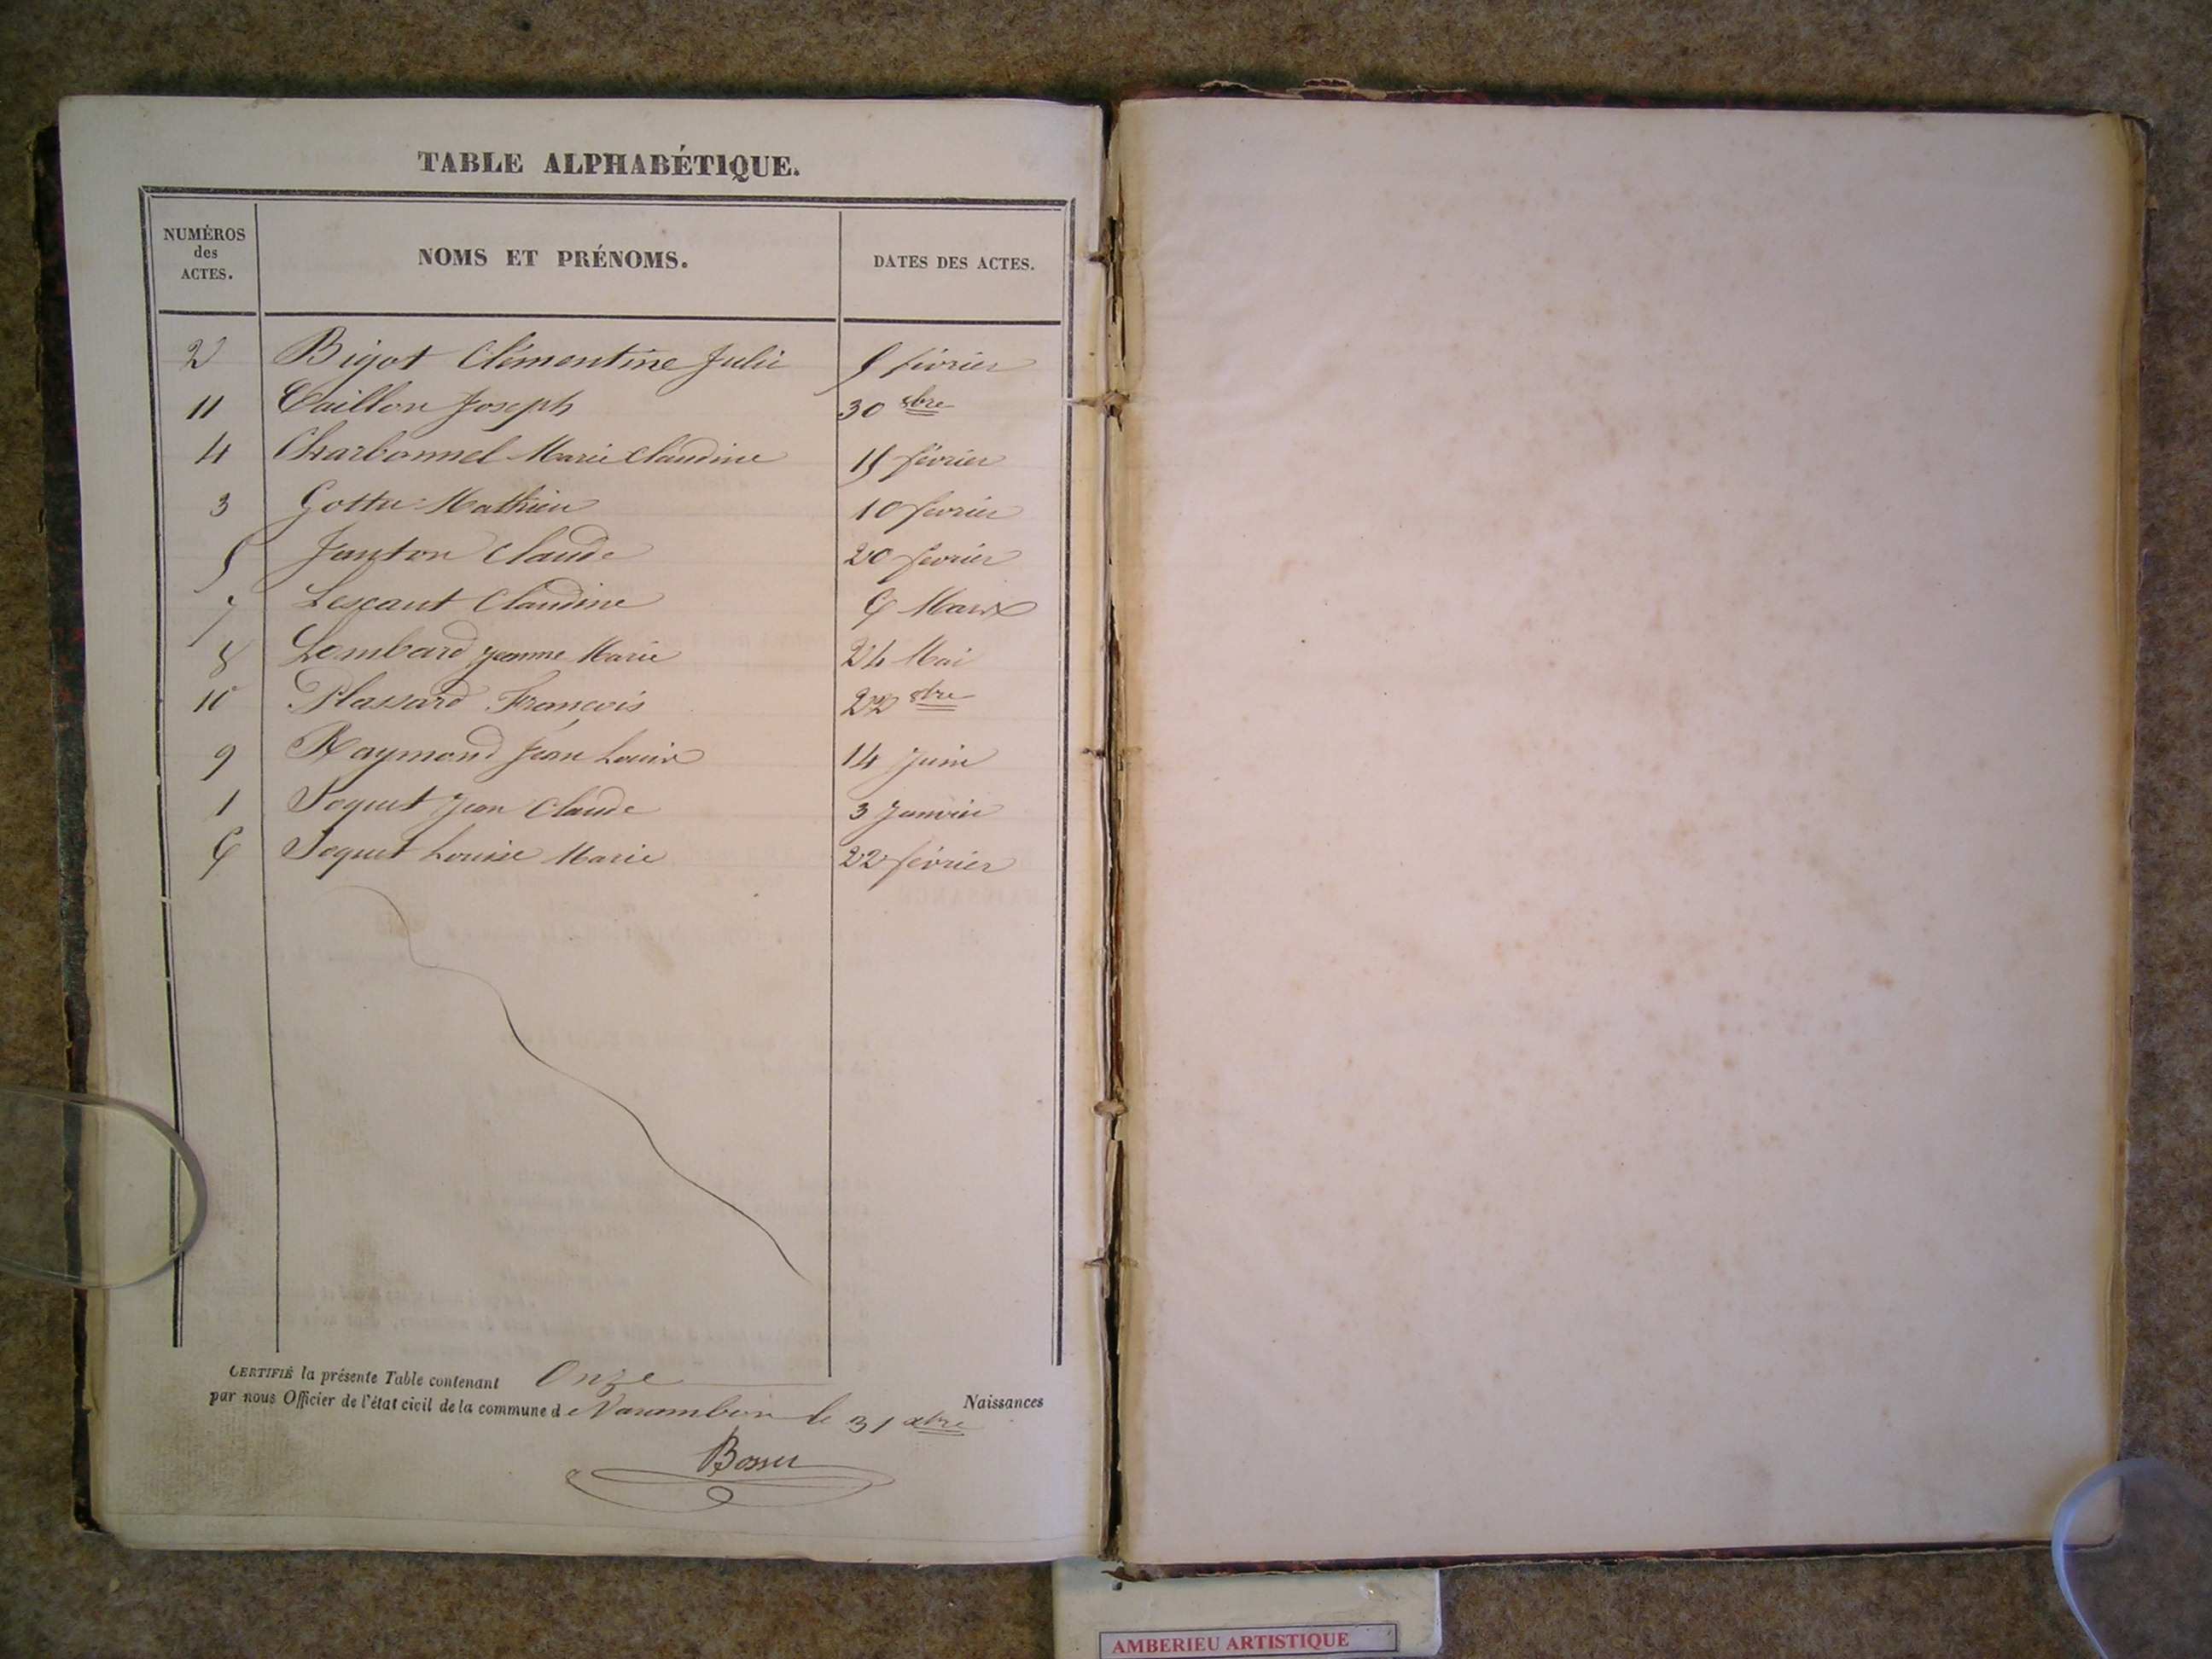 TABLE ALPHABÉTIQUE.
NUMÉROS des ACTES. NOMS ET PRÉNOMS. DATES DES ACTES.
2 Bigot Clémentine Julie 5 février
11 Caillon Joseph 30 8bre
4 Charbonnel Marie Claudine 15 février
3 Gottu Mathieu 10 fevrier
5 Janton Claude 20 fevrier
7 Lescaut Claudine 6 Mars
8 Lombard Jeanne Marie 24 Mai
10 Plassard François 22 8bre
9 Raymond Jean Louis 14 juin
1 Soquet Jean Claude 3 Janvier
6 Soquet Louise Marie 22 février
CERTIFIÉ la présente Table contenant Onze Naissances
par nous Officier de l'état civil de la commune d Varambon le 31 xbre
AMBERIEU ARTISTIQUE